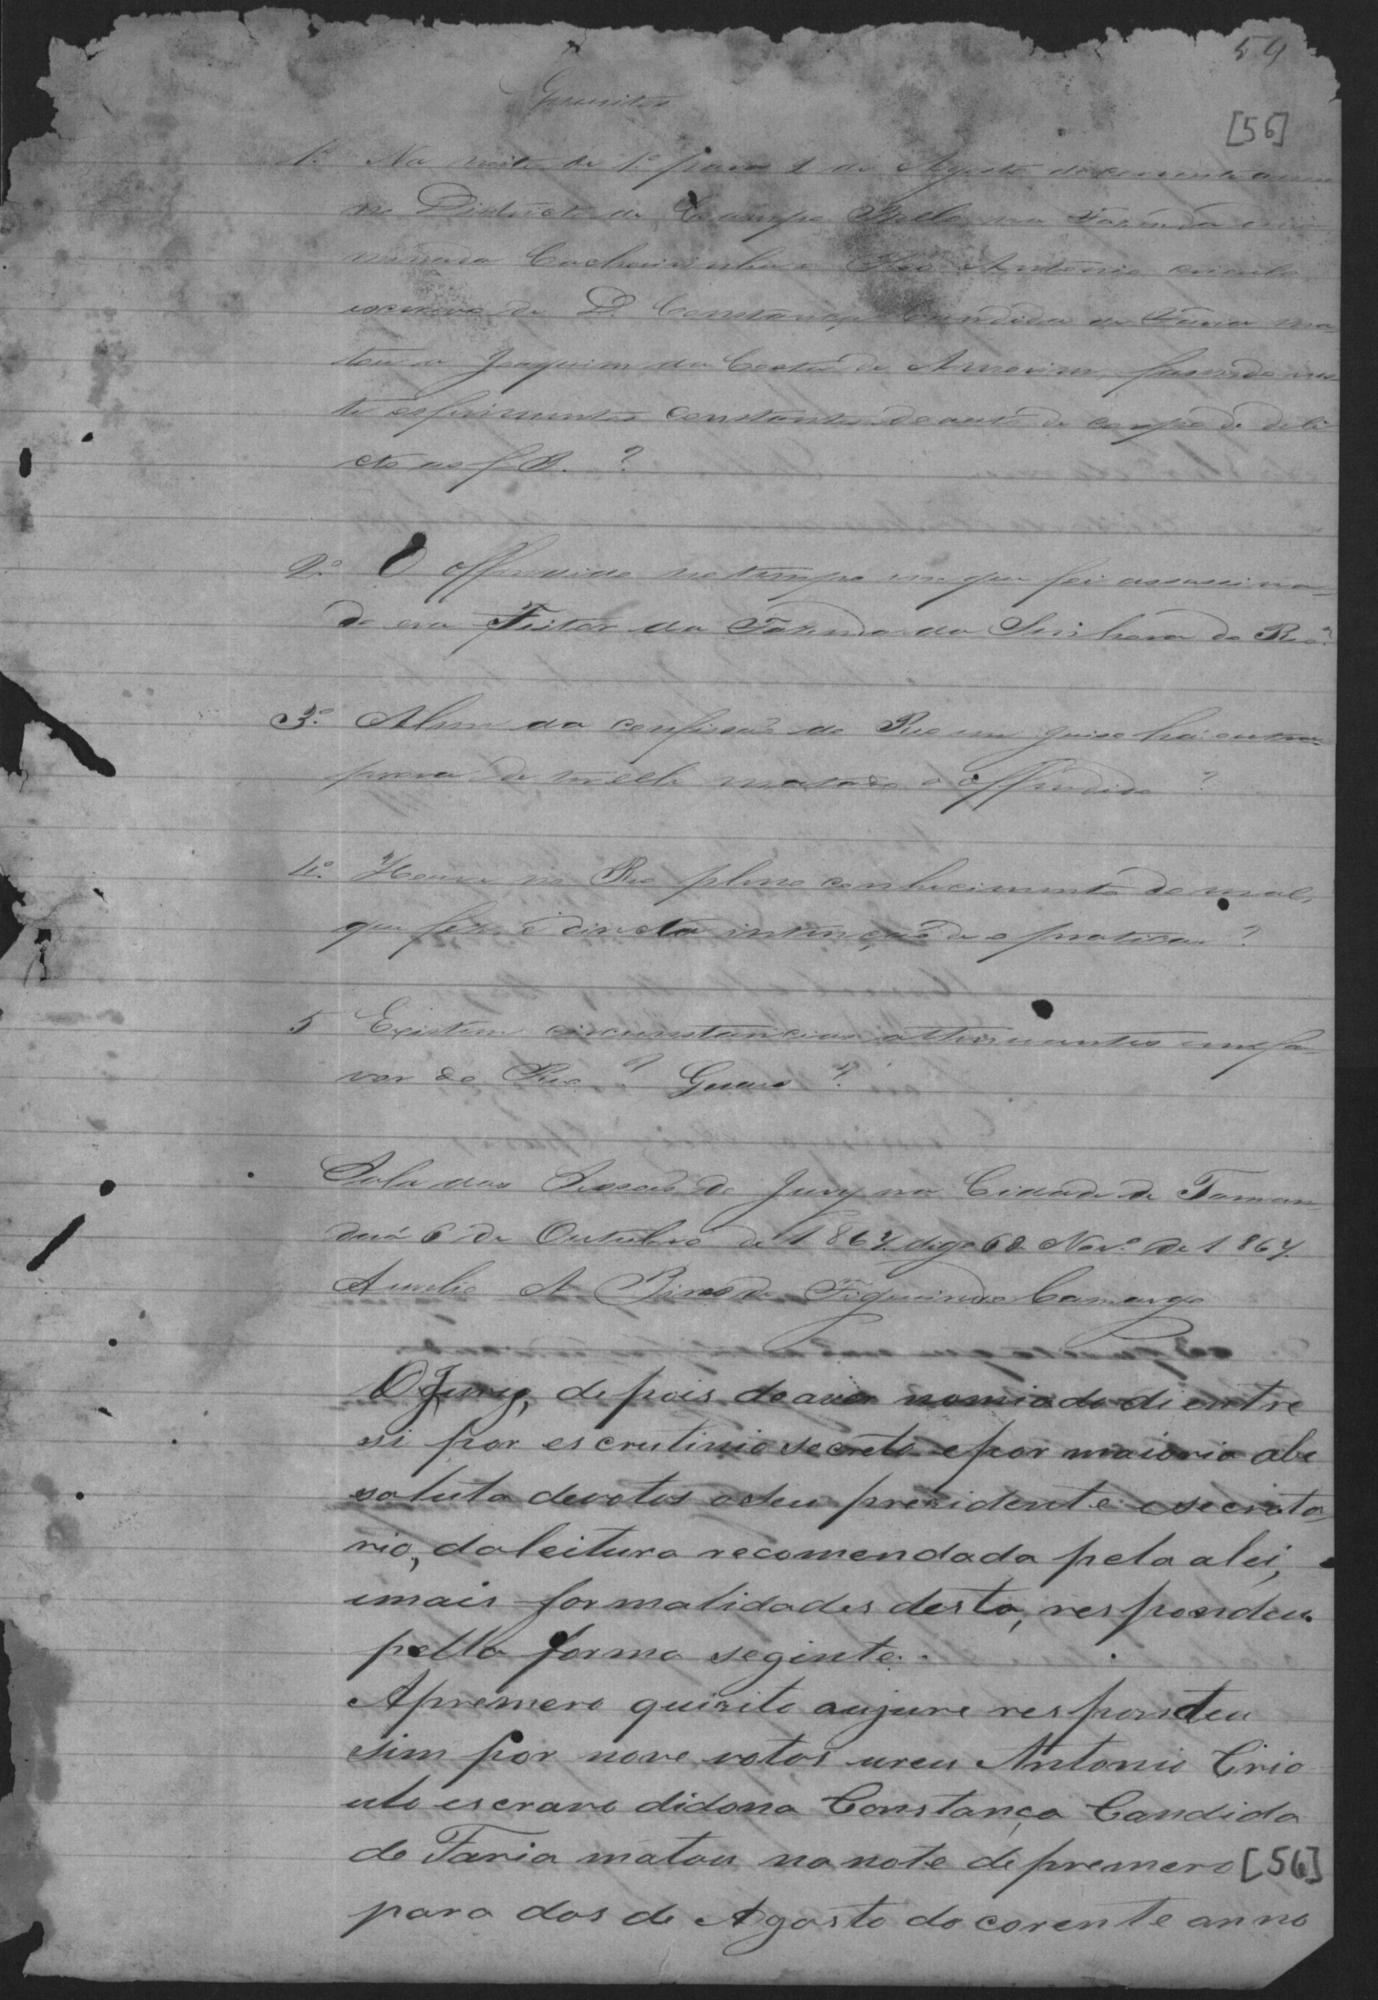 54
[56]
Quesitos
1º Na noite de 1º para 2 de Agosto do corrente anno
no Districto de Campo Bello na Fazenda
minada Cachoeirinha o Reo Antonio crioulo
escravo de D. Constança Candida de Faria ma
tou a Joaquim da Costa de Amorim, fasendo nes
te os ferimentos constantes do auto de corpo de deli
cto as f 8. ?
2º O offendido no tempo em que foi assassina-
do era Feitor da Fazenda da Senhora do Reo?
3º Alem da confissão do Reo em Juiso ha outra
prova de ter elle matado o offendido ?
4º Houve no Reo pleno conhecimento do mal,
que fez e directa intenção de o praticar ?
5 Existem circunstancias attenuantes em fa
vor do Reo ? Quaes ?
Sala das Sessões do Jury na Cidade de Taman
duá 6 de Outubro de 1867. digo 6 de Novº de 1867.
Aurelio A Pires de Figueiredo Camargo
O Jury, depois de aver nomiado di entre
si por escrutinio secreto e por maioria abe
soluta devotos o seu presidente e secreta
rio, da leitura recomendada pela a lei,
imais formalidades desta, respondeu
pella forma seginte.
A premero quisito aujure respondeu
sim por nove votos ureu Antonio Crio
ulo escravo didona Constança Candida
de Faria matou na note de premero [56]
para dos de Agosto do corente anno